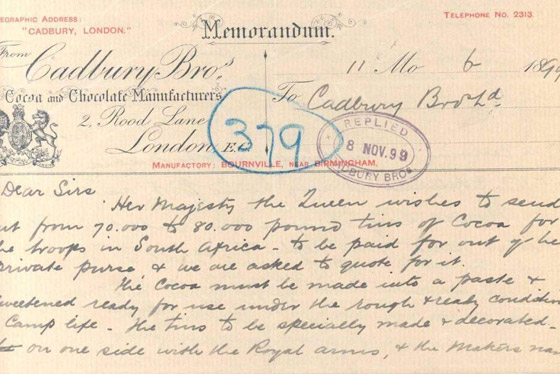 EGRAPHIC ADDRESS:
"CADBURY, LONDON."
Memorandum.
TELEPHONE NO. 2313.
From
Cadbury Bros
11 Mo 6 1899
Cocoa and Chocolate Manufacturers
To Cadbury Bro Ld
2, Rood Lane
London, E.C.
379
REPLIED
8 NOV. 99
DBURY BROS
MANUFACTORY: BOURNVILLE, NEAR BIRMINGHAM.
Dear Sirs
Her Majesty the Queen wishes to send
ut from 70.000 to 80.000 pound tins of Cocoa for
he troops in South Africa - to be paid for out of he
private purse & we are asked to quote for it.
The Cocoa must be made into a paste &
weetened ready for use under the rough & ready conditio
Camp life. The tins to be specially made & decorated.
on one side with the Royal arms, & the Makers na